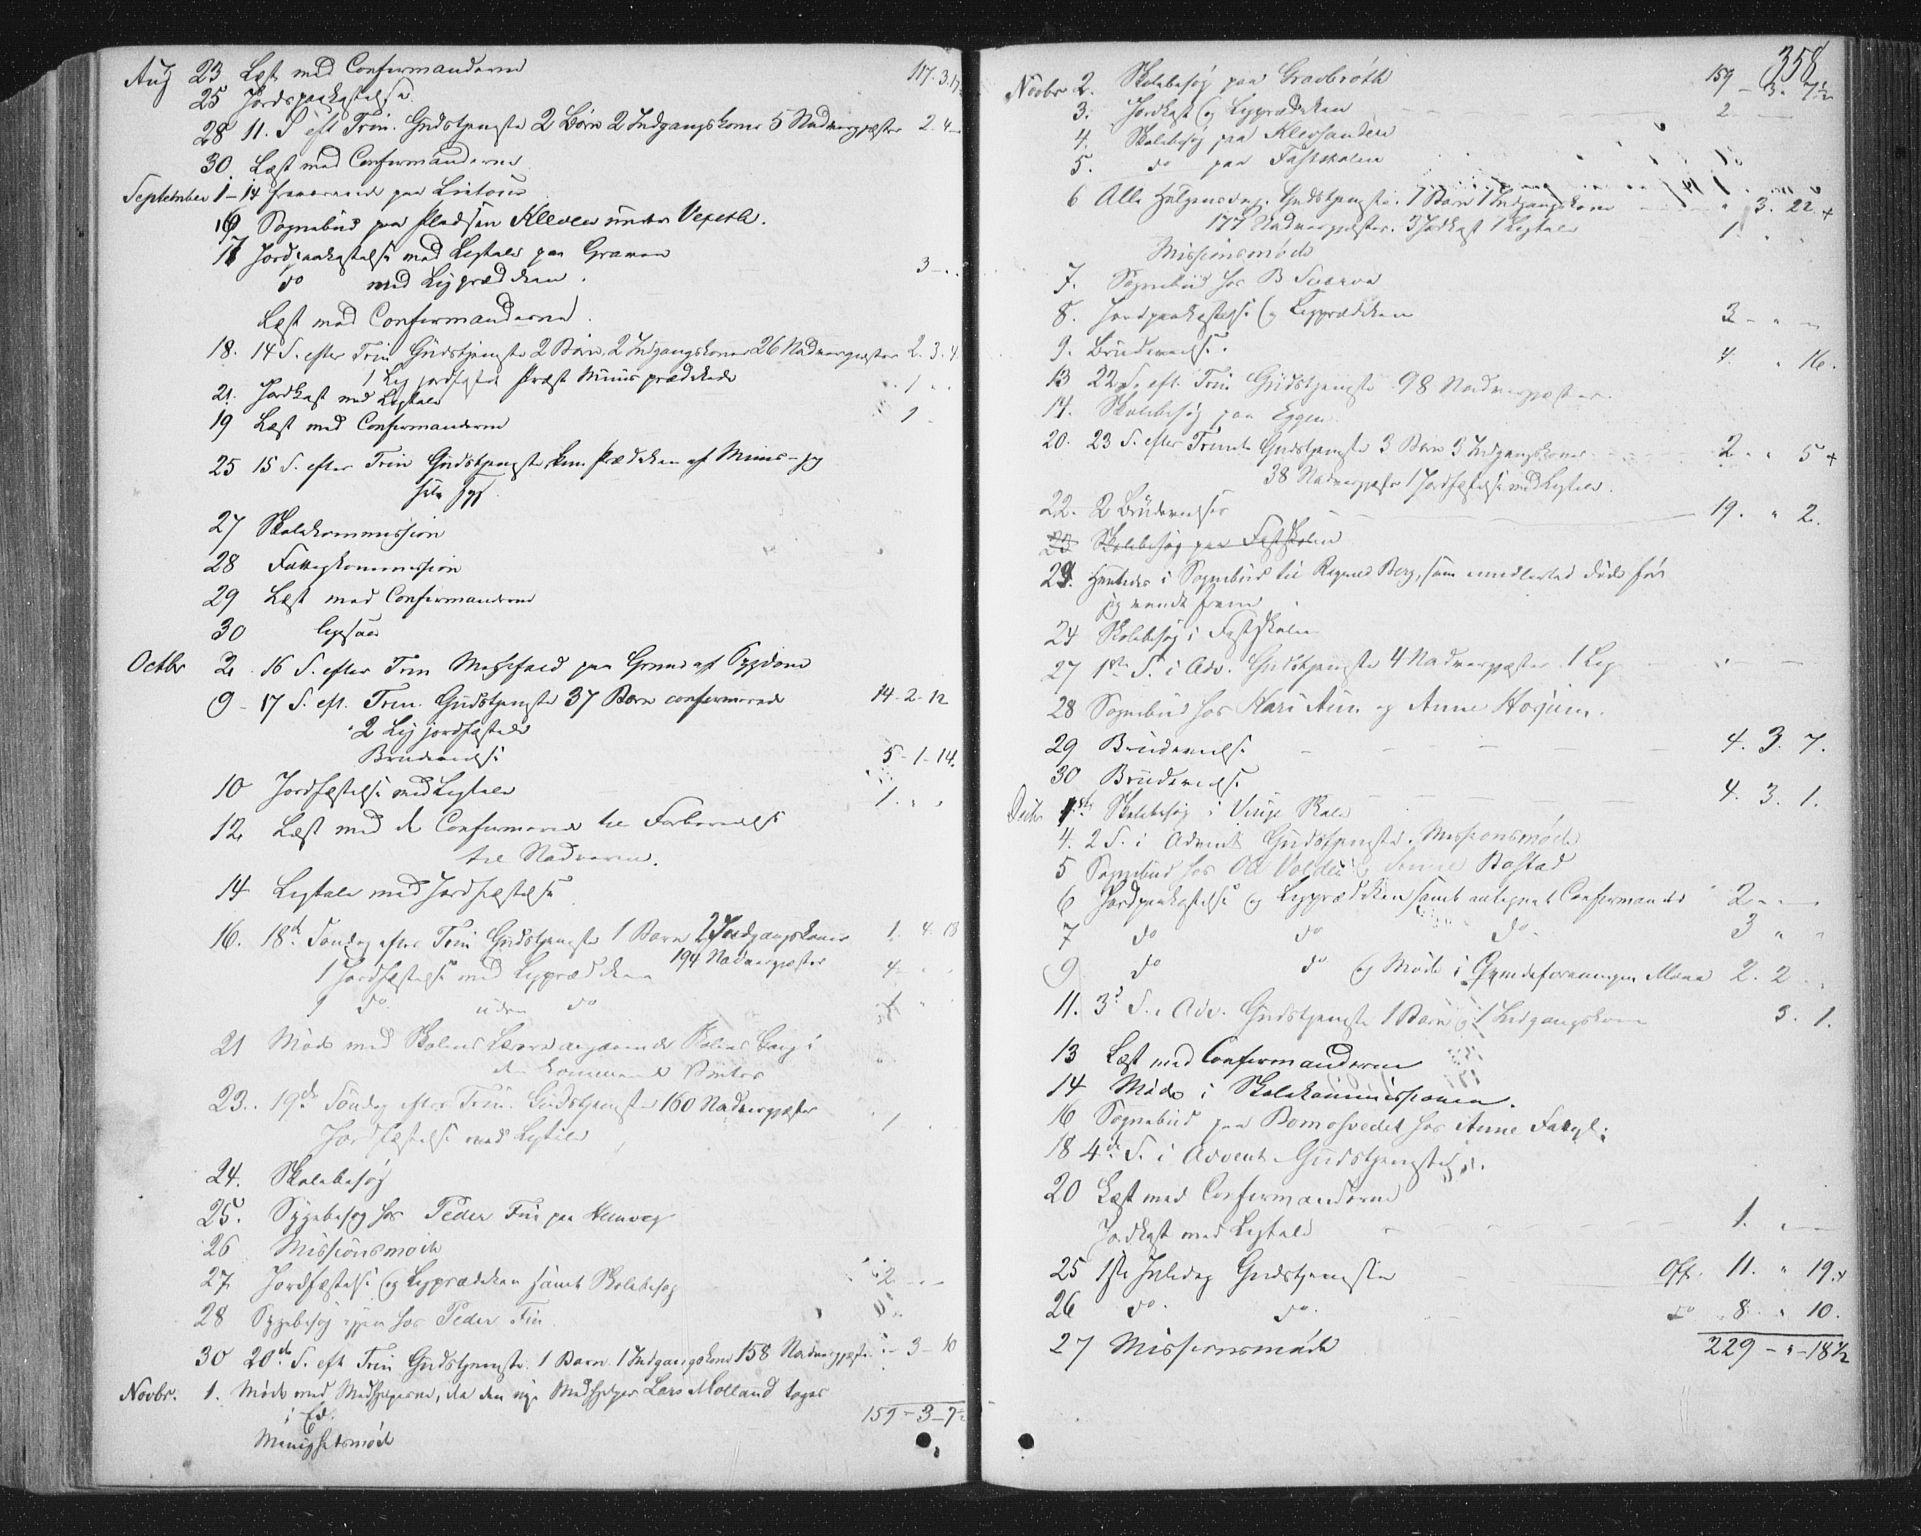 Aug 23 Læst med Confirmanderne 117.3.17
25 Jordpaakastelse.
28 11. S eft Trin. Gudstjeneste 2 Børn 2 Indgangskoner 5 Nadvergjæster 2.4 –
30. Læst med Confirmanderne
September 1–14 fraværende paa
16 Sognebud paa Pladsen Kleven under
17 Jordpaakastelse med Ligtale paa Graven
do med Ligprædiken. 3 – . .
Læst med Confirmanderne.
18. 14 S. efter Trin Gudstjeneste 2 Børn, 2 Indgangskoner 26 Nadvergjæster 2. 3. 4
1 Lig jordfæstet Præst Muus prædikede
21. Jordkast med Ligtale 1
19 Læst med Confirmanderne 1
25 15 S. efter Trin Gudstjeneste, Prædiken af Muus – jeg
selv syg.
27 Skolekommission
28 Fattigkommission
29 Læst med Confirmanderne
30 ligesaa
Octbr 2. 16 S. efter Trin Messefald paa Grund af Sygdom
9 – 17 S. eft. Trin. Gudstjeneste 37 Børn confirmerede 14-2-12
2 Lig jordfæstede
Brudevielse 5-1-14.
10 Jordfæstelse med Ligtale 1. " "
12 Læst med de Confirmerede til Forberedelse
til Nadveren.
14 Ligtale med Jordfæstelse
16. 18de Søndag efter Trin Gudstjeneste 1 Barn 2 Indgangskoner 1. 4. 13
194 Nadvergjæster
1 Jordfæstelse med Ligprædiken 4
1 do uden do
21 Møde med Skolens Lærere angaaende Skolens Gang i
den kommende Vinter
23. 19de Søndag efter Trin. Gudstjeneste 160 Nadvergjæster
Jordfæstelse med Ligtale 1
24. Skolebesøg
25. Sygebesøg hos Peder
26 Missionsmøde
27 Jordfæstelse og Ligprædiken samt Skolebesøg 2 – –
28 Sygebesøg igjen hos Peder
30 20de S. eft Trin Gudstjeneste. 1 Barn 1 Indgangskone 158 Nadvergjæster – 3 – 10
Novbr. 1. Møde med Medhjelperne, da den nye Medhjelper Lars Molland toges
i Ed.
159-3-7½
Menighedsmøde
358
Novbr 2. Skolebesøg paa 159 – 3. 7½
3. Jordkast og Ligprædiken 2. –
4. Skolebesøg paa Klevsanden
5. do paa Fastskolen
6 Alle Helgensdag. Gudstjeneste. 1 Barn 1 Indgangskone " 3. 22 +
177 Nadvergjæster. 3 Jordkast 1 Ligtale 1.
Missionsmøde
7. Sognebud hos B
8. Jordpaakastelse og Ligprædiken 3 – " –
9. Brudevielse. 4. " 16.
13 22 S. eft. Trin Gudstjeneste 98 Nadvergjæster.
14. Skolebesøg paa Eggen
20. 23 S. efter Trinit. Gudstjeneste 3 Børn 3 Indgangskoner 2. " 5 +
38 Nadvergjæster 1 Jordfæstelse med Ligtale.
22. 2 Brudevielser 19. " 2.
23 Skolebesøg paa Fastskolen
23. Hentedes i Sognebud til Berg, som imidlertid døde før
jeg naade frem.
24 Skolebesøg i Fastskolen
27 1ste S. i Adv. Gudstjeneste 4 Nadvergjæster. 1 Lig
28 Sognebud hos Kari Aun og Anne
29 Brudevielse 4. 3. 7.
30 Brudevielse 4. 3. 1.
Decbr 1ste Skolebesøg i Skole
4. 2 S. i Advent Gudstjeneste. Missionsmøde
5 Sognebud hos Ole og Anne Bostad
6 Jordpaakastelse og Ligprædiken samt antegnet Confirmander 2 – –
7 do do do. 3 " "
9 do do og Møde i 2. 2 .
11. 3d S. i Adv. Gudstjeneste 1 Barn og 1 Indgangskone 3. 1.
13 Læst med Confirmanderne
14 Møde i Skolekommissionen.
16 Sognebud paa hos Anne
18 4de S. i Advent. Gudstjeneste.
20 Læst med Confirmanderne
Jordkast med Ligtale 1. – –
25 1ste Juledag Gudstjeneste Off. 11. " 19.+
26 do. do. do 8. " 10.
229 – " – 18½
27 Missionsmøde